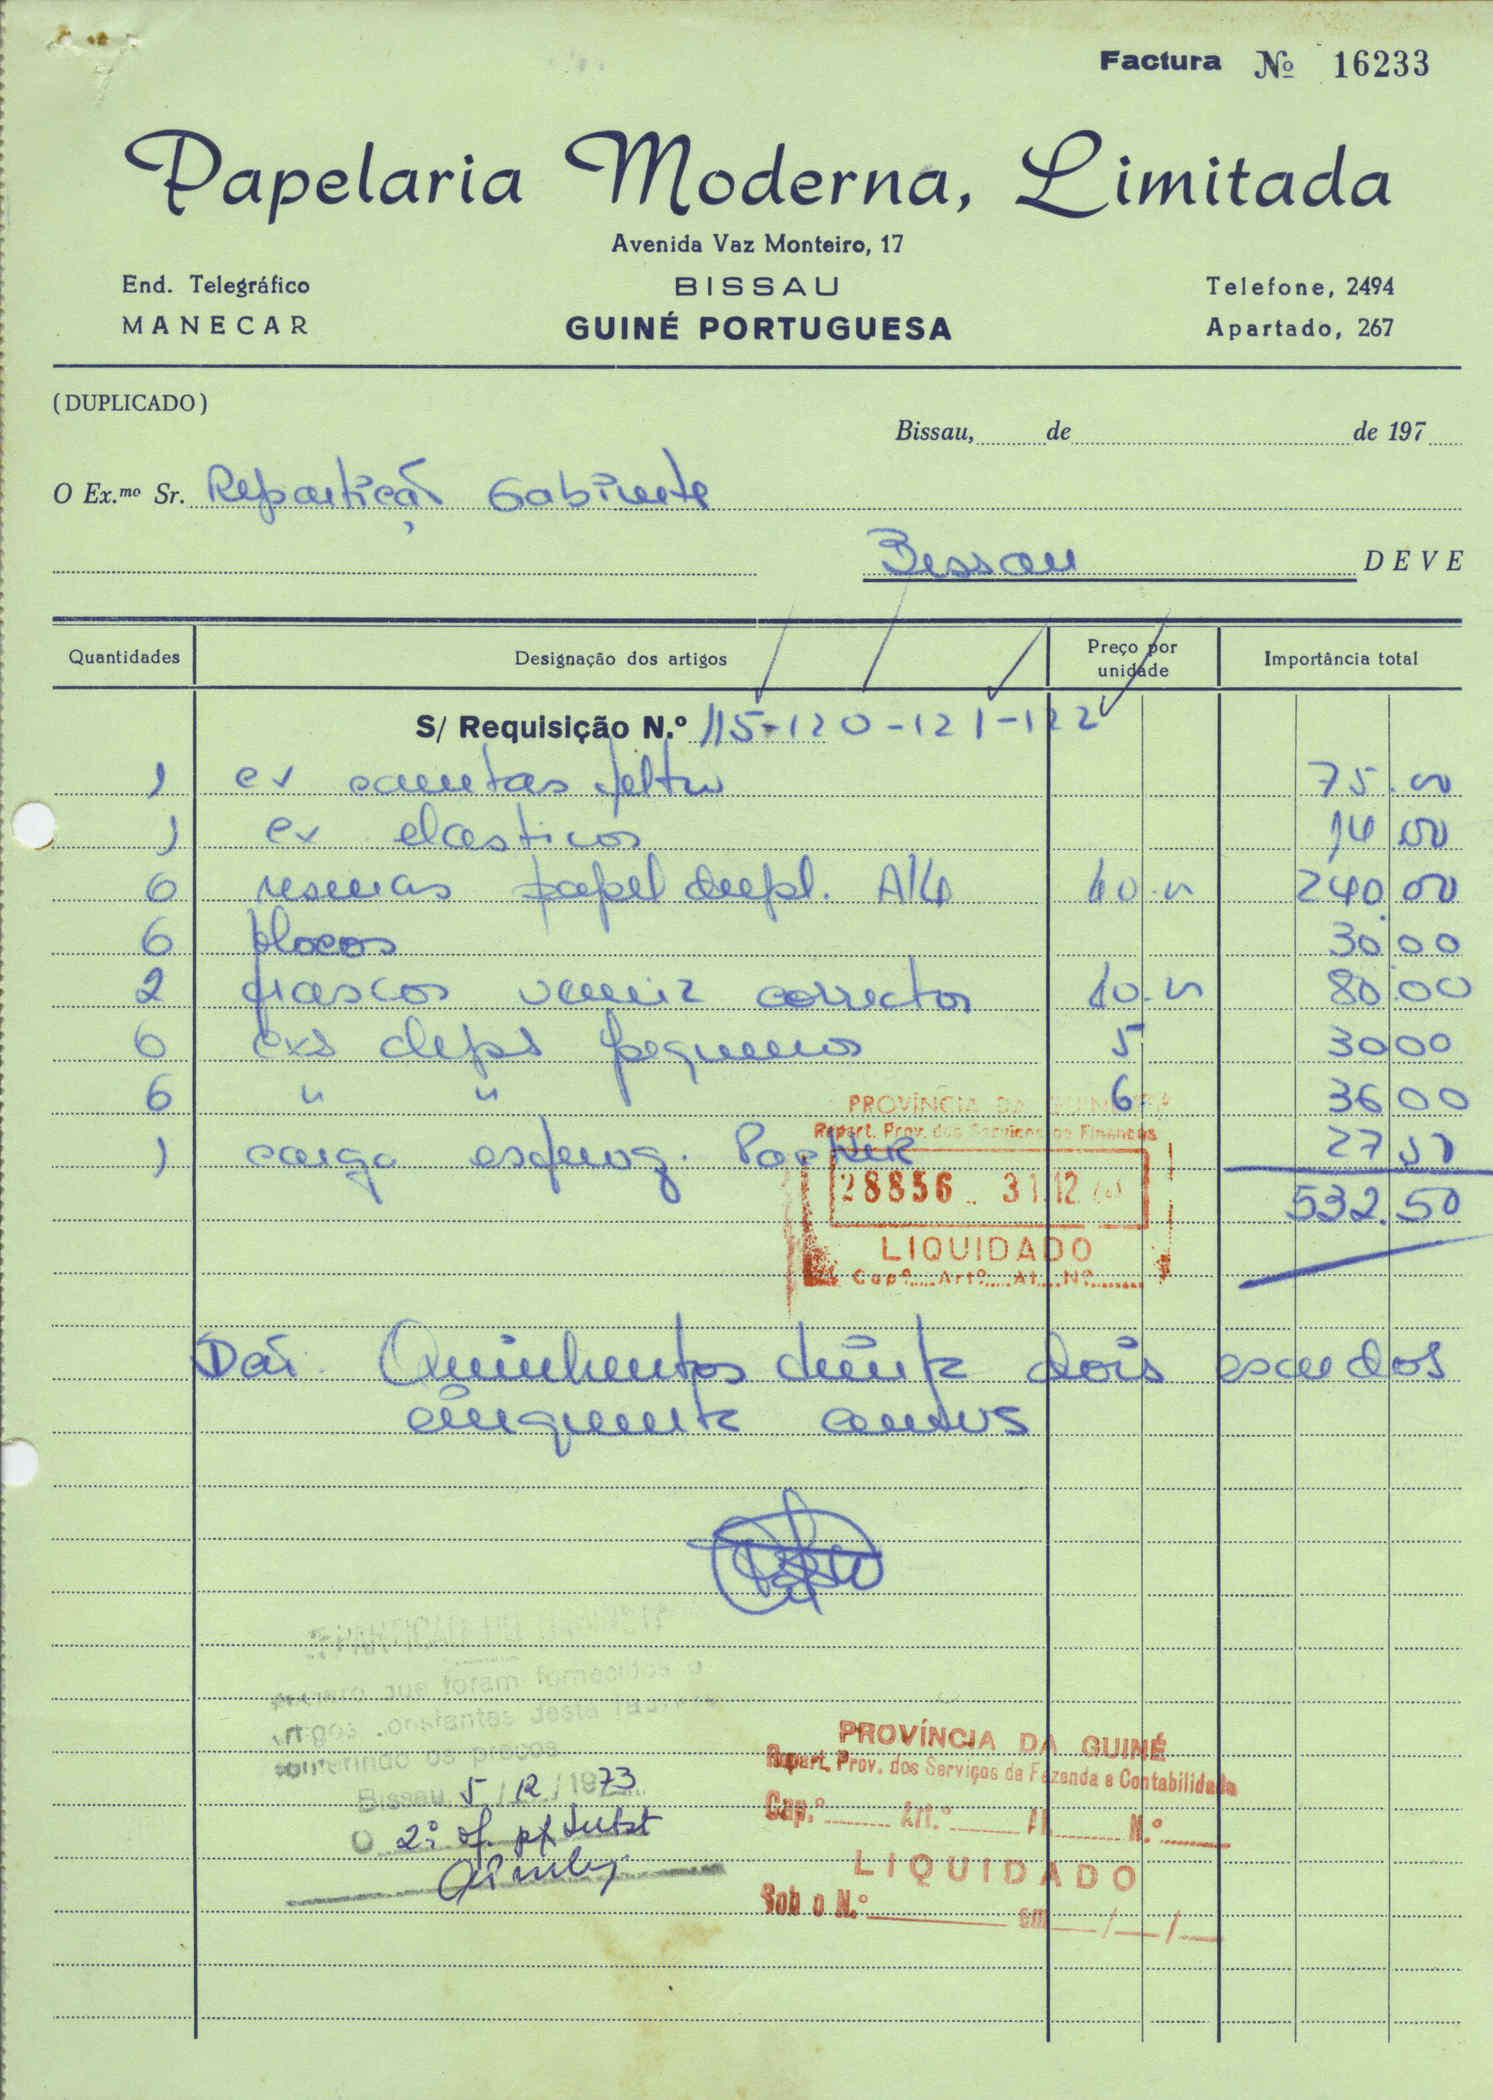 Factura Nº 16233
Papelaria Moderna, Limitada
Avenida Vaz Monteiro, 17
End. Telegráfico BISSAU Telefone, 2494
MANECAR GUINÉ PORTUGUESA Apartado, 267
(DUPLICADO)
Bissau, de de 197
O Ex.mo Sr. Repartição Gabinete
Bissau DEVE
Quantidades Designação dos artigos Preço por unidade Importância total
S/ Requisição N.º 115-120-121-122
1 cx canetas feltro 75.00
1 cx elasticos 14.00
6 resmas papel dupl. A/4 40.00 240.00
6 blocos 30.00
2 frascos verniz corrector 40.00 80.00
6 cxs clips pequenos 5 30.00
6 " " 6 36.00
1 carga esferog. Parker 27.50
532.50
PROVÍNCIA DA
Repart. Prov. dos Serviços de Finanças
28856 31.12.73
LIQUIDADO
Cap.º Artº Al. Nº
São: Quinhentos trinta dois escudos
cinquenta centavos
REPARTIÇÃO DO GABINETE
que foram fornecidos o
artigos constantes desta factura
conferindo os preços
Bissau, 5/12/1973
O 2.º of. subst
PROVÍNCIA DA GUINÉ
Repart. Prov. dos Serviços de Fazenda e Contabilidade
Cap.º Art.º Al. N.º
LIQUIDADO
Sob o N.º em / /